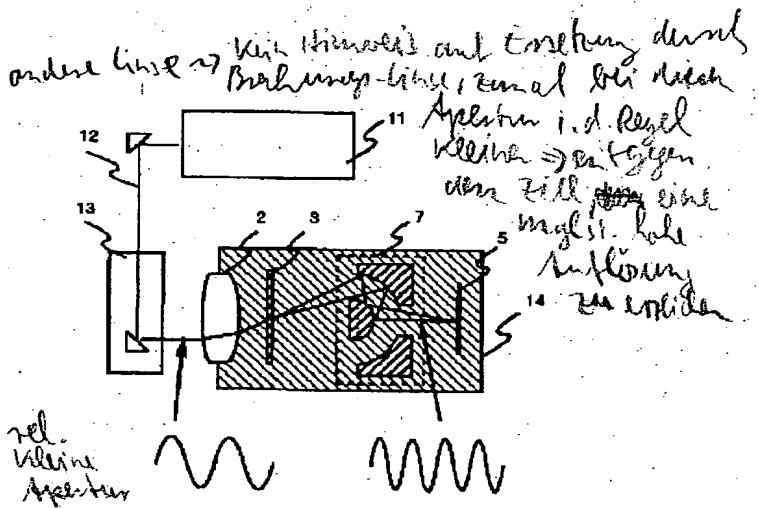 andere Linse → Kein Hinweis auf Ersetzung durch
Brechungs-Linse, zumal bei diesen
Apertur i.d. Regel
kleiner ⇒ entgegen
dem Ziel eine
mögl. hohe
Auflösung
zu erzielen
11
12
13
2
3
7
5
14
rel.
kleine
Apertur